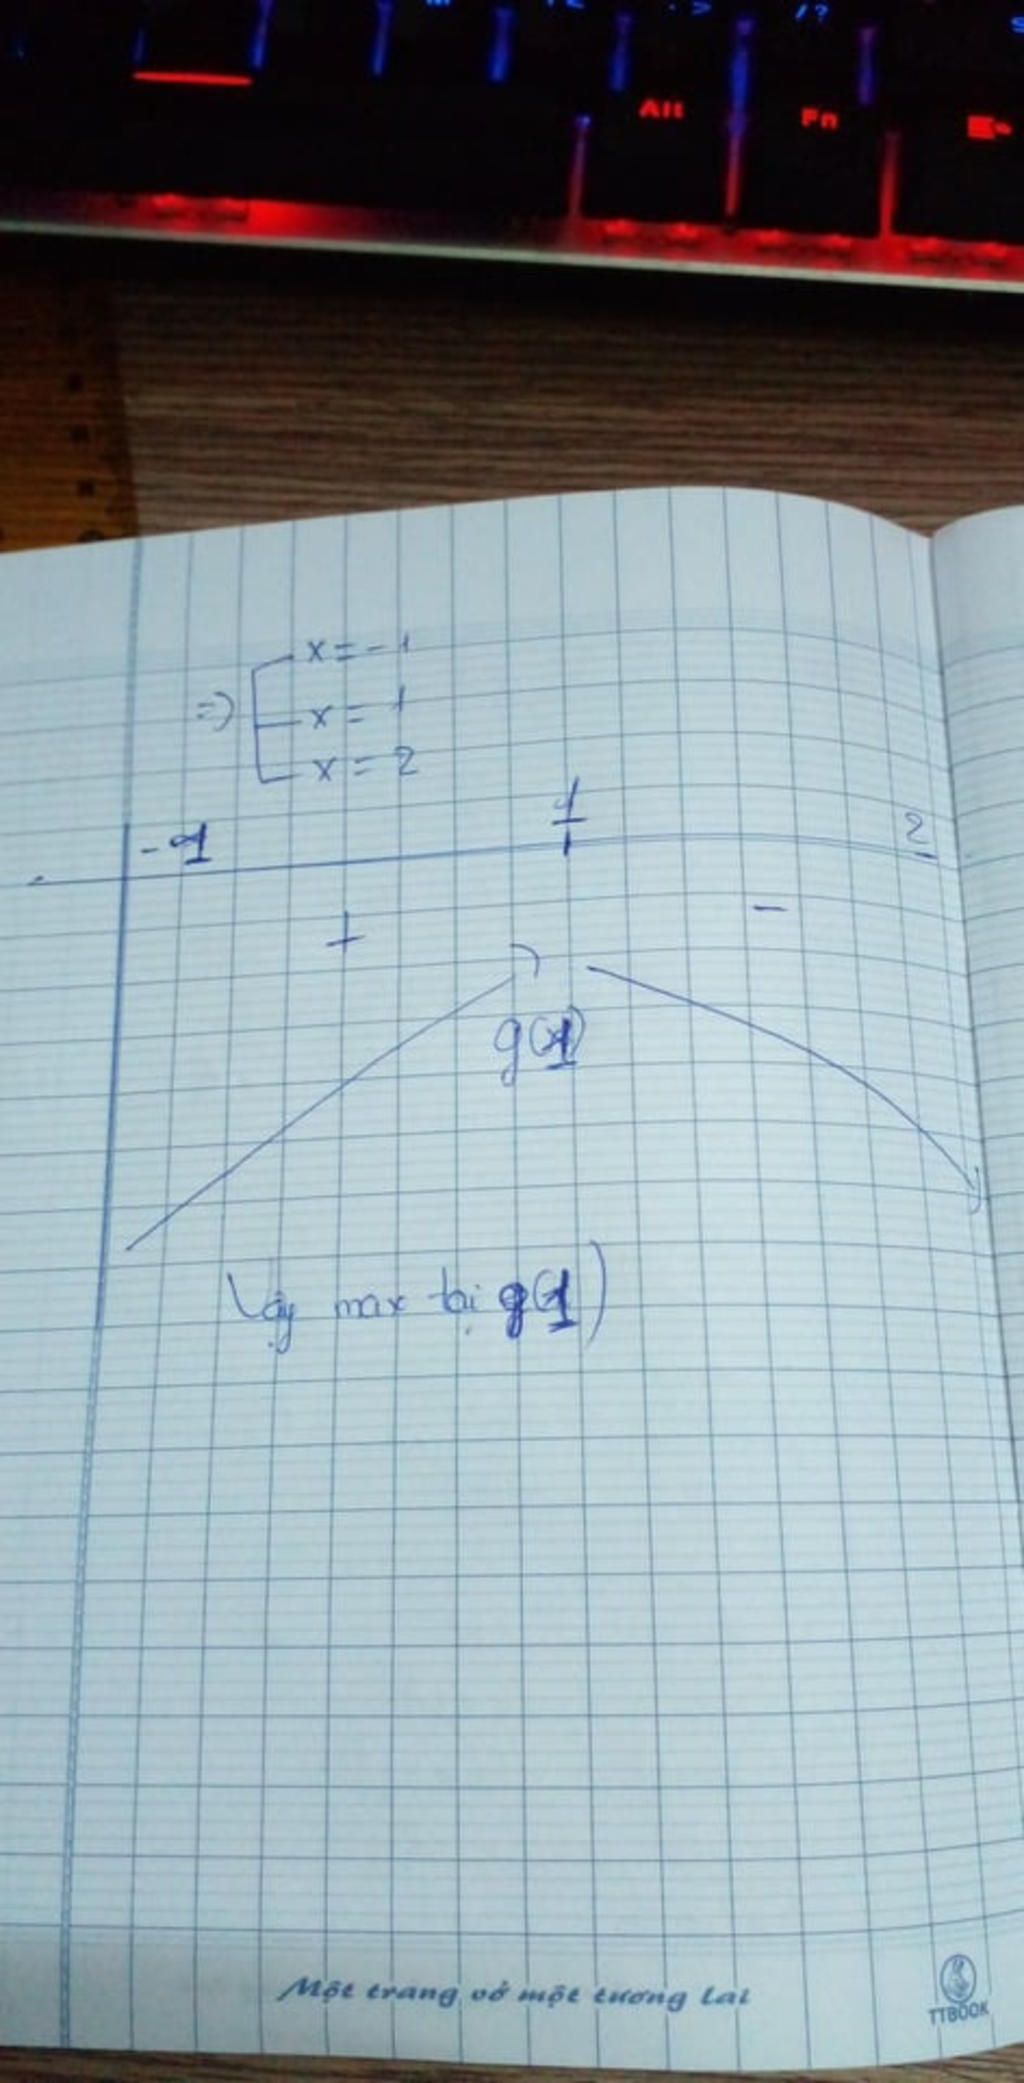 Alt Fn
x = -1
=> x = 1
x = 2
-1 1 2
+ -
g(1)
Lấy max tại g(1)
Một trang vở một tương lai
TTBOOK